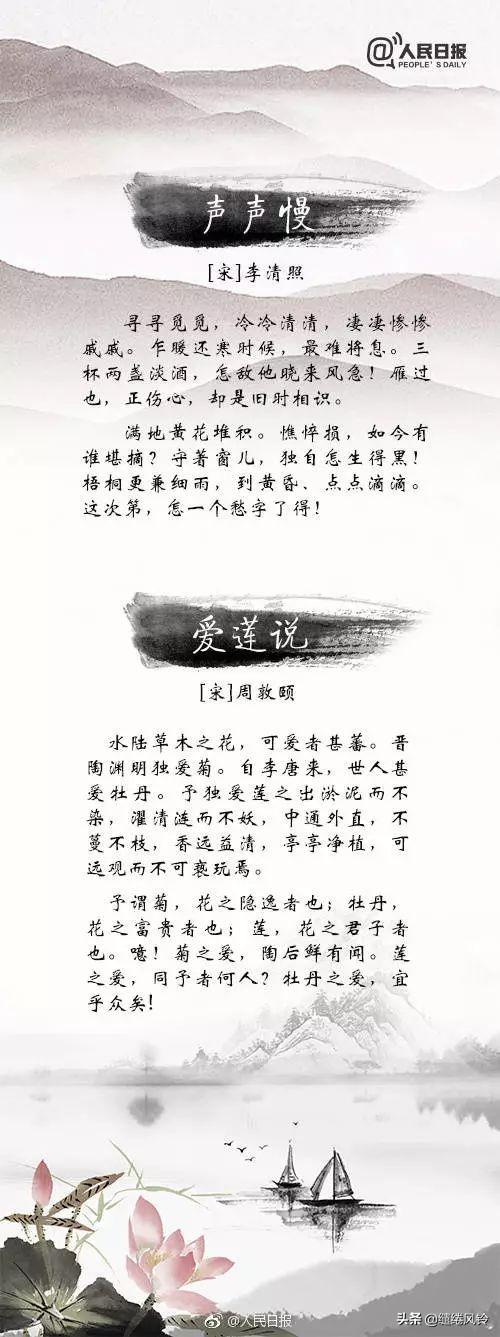 @人民日报
PEOPLE'S DAILY
声声慢
[宋]李清照
寻寻觅觅，冷冷清清，凄凄惨惨
戚戚。乍暖还寒时候，最难将息。三
杯两盏淡酒，怎敌他晚来风急！雁过
也，正伤心，却是旧时相识。
满地黄花堆积。憔悴损，如今有
谁堪摘？守著窗儿，独自怎生得黑！
梧桐更兼细雨，到黄昏、点点滴滴。
这次第，怎一个愁字了得！
爱莲说
[宋]周敦颐
水陆草木之花，可爱者甚蕃。晋
陶渊明独爱菊。自李唐来，世人甚
爱牡丹。予独爱莲之出淤泥而不
染，濯清涟而不妖，中通外直，不
蔓不枝，香远益清，亭亭净植，可
远观而不可亵玩焉。
予谓菊，花之隐逸者也；牡丹，
花之富贵者也；莲，花之君子者
也。噫！菊之爱，陶后鲜有闻。莲
之爱，同予者何人？牡丹之爱，宜
乎众矣！
@人民日报
头条@缱绻风铃